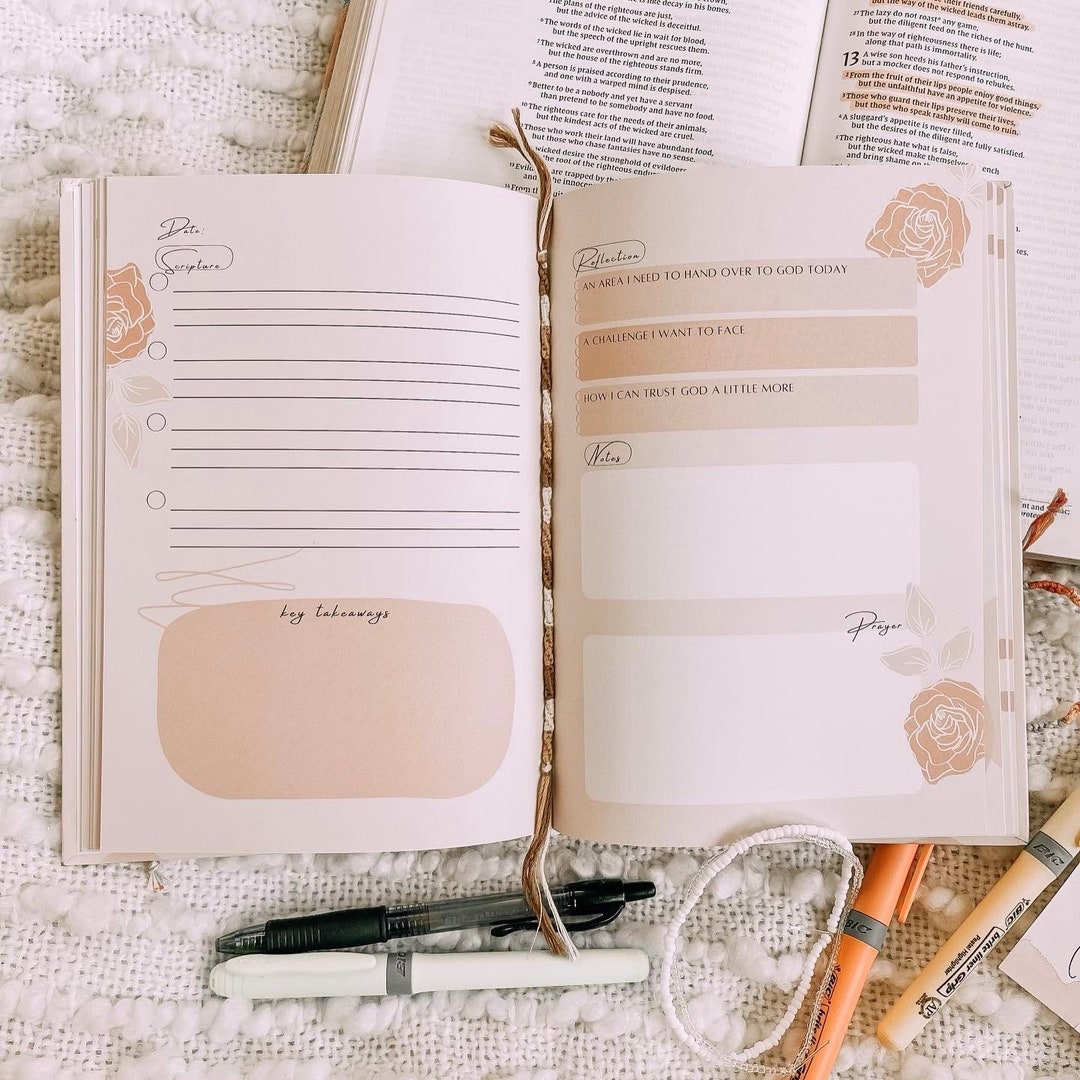 is like decay in his bones.
The plans of the righteous are just,
but the advice of the wicked is deceitful.
6 The words of the wicked lie in wait for blood,
but the speech of the upright rescues them.
7 The wicked are overthrown and are no more,
but the house of the righteous stands firm.
8 A person is praised according to their prudence,
and one with a warped mind is despised.
9 Better to be a nobody and yet have a servant
than pretend to be somebody and have no food.
10 The righteous care for the needs of their animals,
but the kindest acts of the wicked are cruel.
Those who work their land will have abundant food,
but those who chase fantasies have no sense.
wicked desire the stronghold of evildoers
the root of the righteous
13 Evil are trapped by
the innocent
14 From
their friends carefully,
but the way of the wicked leads them astray.
27 The lazy do not roast any game,
but the diligent feed on the riches of the hunt.
28 In the way of righteousness there is life;
along that path is immortality.
13 A wise son heeds his father's instruction,
but a mocker does not respond to rebukes.
2 From the fruit of their lips people enjoy good things,
but the unfaithful have an appetite for violence.
3 Those who guard their lips preserve their lives,
but those who speak rashly will come to ruin.
4 A sluggard's appetite is never filled,
but the desires of the diligent are fully satisfied.
5 The righteous hate what is false,
but the wicked make themselves
and bring shame
Date:
Scripture
key takeaways
Reflection
AN AREA I NEED TO HAND OVER TO GOD TODAY
A CHALLENGE I WANT TO FACE
HOW I CAN TRUST GOD A LITTLE MORE
Notes
Prayer
BIC
BIC
BIC
BIC brite liner Grip
Pastel Highlighter
AP